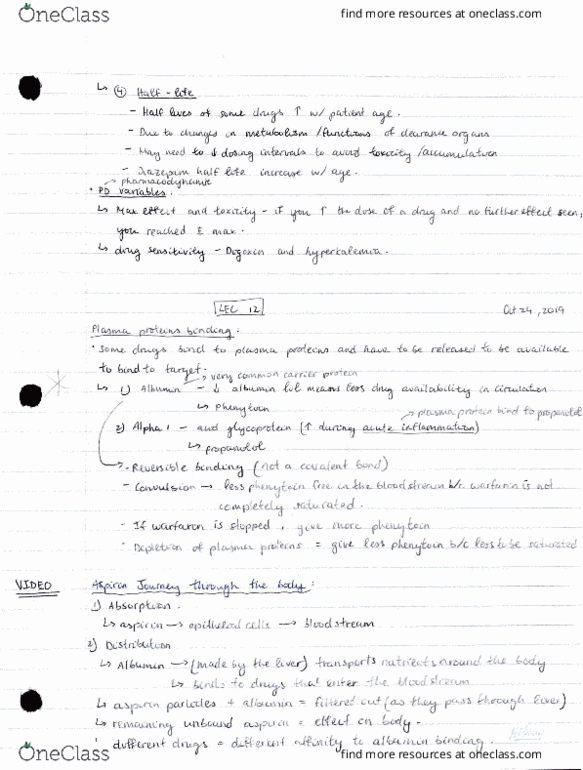 OneClass
find more resources at oneclass.com
↳ ④ Half-life
- Half lives of some drugs ↑ w/ patient age.
- Due to changes in metabolism/functions of clearance organs
- May need to ↓ dosing intervals to avoid toxicity/accumulation
- Diazepam half life increase w/ age.
↗ pharmacodynamic
• PD variables.
↳ Max effect and toxicity - if you ↑ the dose of a drug and no further effect seen,
you reached E max.
↳ drug sensitivity - Digoxin and hyperkalemia.
LEC 12
Oct 24, 2019
Plasma proteins binding:
• some drugs bind to plasma proteins and have to be released to be available
to bind to target.
→ very common carrier protein
↳ 1) Albumin - ↓ albumin lvl means less drug availability in circulation
↳ phenytoin
→ plasma protein bind to propanolol
2) Alpha 1 - acid glycoprotein (↑ during acute inflammation)
↳ propanolol
→ • Reversible binding (not a covalent bond)
- Convulsion → less phenytoin free in the bloodstream b/c warfarin is not
completely saturated.
- If warfarin is stopped, give more phenytoin
- Depletion of plasma proteins = give less phenytoin b/c less to be saturated
VIDEO
Aspirin Journey through the body:
1) Absorption.
↳ aspirin → epithelial cells → bloodstream
2) Distribution
↳ Albumin → (made by the liver) transports nutrients around the body
↳ binds to drugs that enter the bloodstream
↳ aspirin particles + albumin = filtered out (as they pass through liver)
↳ remaining unbound aspirin = effect on body.
' different drugs = different affinity to albumin binding.
OneClass
find more resources at oneclass.com